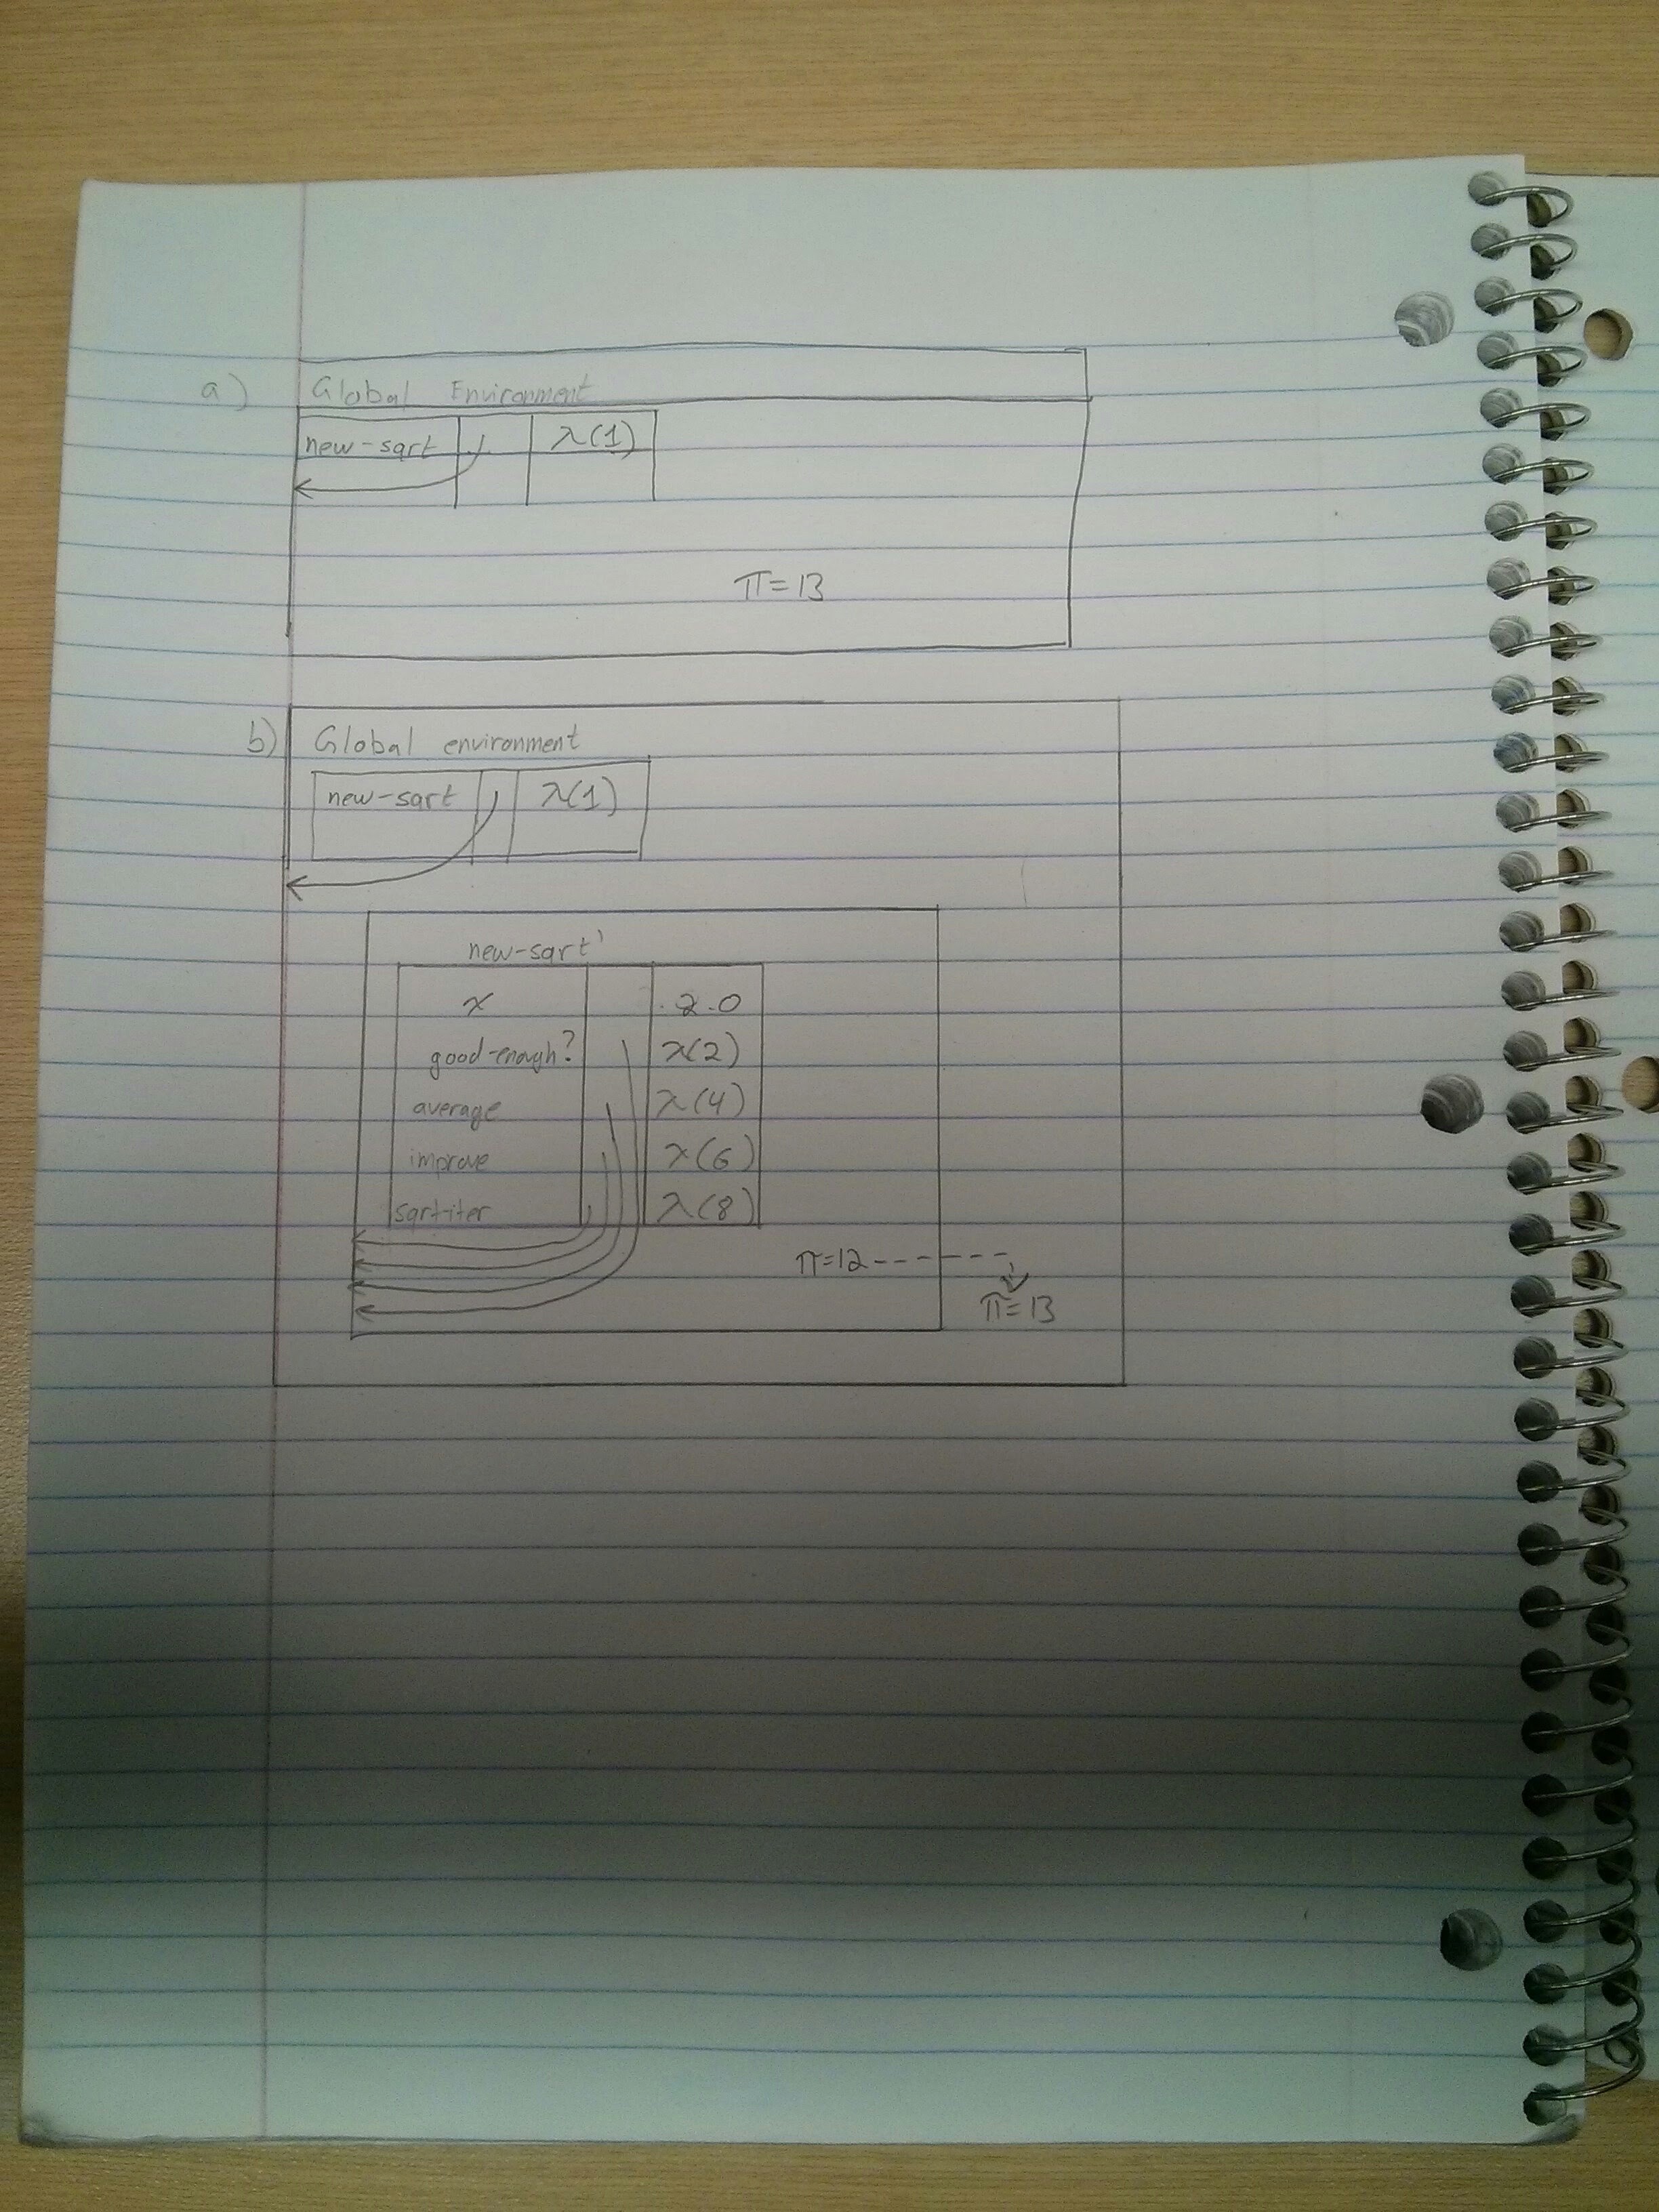 a) Global Environment
new-sqrt λ(1)
π=13
b) Global environment
new-sqrt λ(1)
new-sqrt'
x 2.0
good-enough? λ(2)
average λ(4)
improve λ(6)
sqrt-iter λ(8)
π=12
π=13